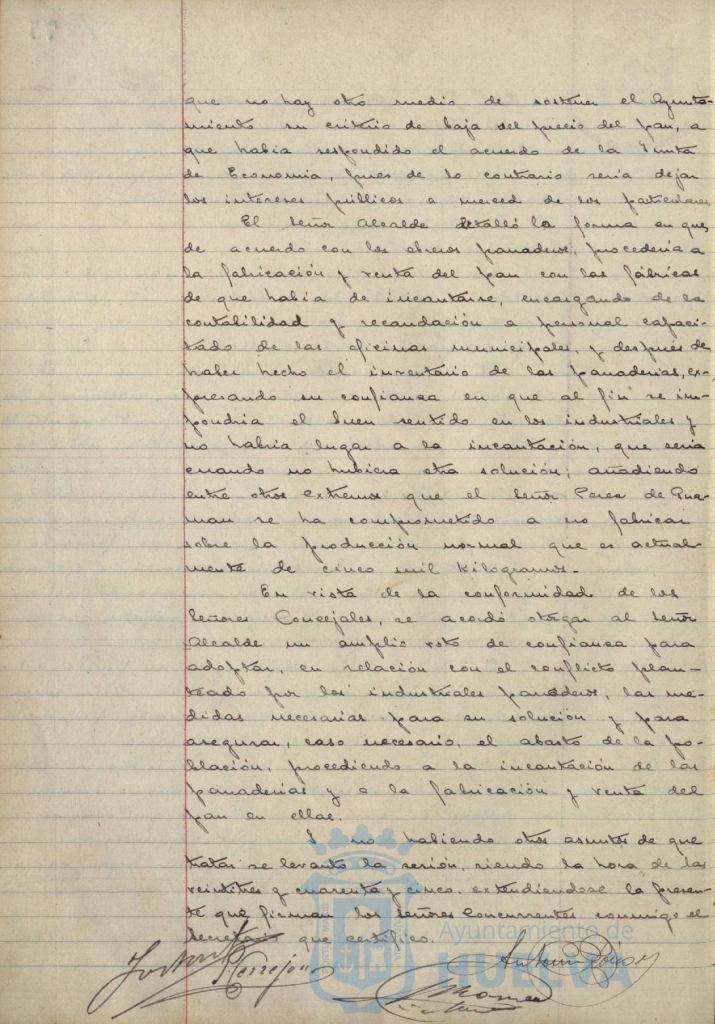 que no hay otro medio de sostener el Ayunta-
miento su criterio de baja del precio del pan, a
que habia respondido el acuerdo de la Junta
de Economia, pues de lo contrario seria dejar
los intereses públicos a merced de los particulares
El Señor Alcalde detalló la forma en que,
de acuerdo con los obreros panaderos, procederia a
la fabricación y venta del pan con las fábricas
de que habia de incautarse, encargando de la
contabilidad y recaudación a personal capaci-
tado de las oficinas municipales, y después de
haber hecho el inventario de las panaderias, ex-
presando su confianza en que al fin se im-
pondria el buen sentido en los industriales y
no habria lugar a la incautación, que seria
cuando no hubiera otra solución; añadiendo
entre otros extremos que el Señor Perez de Guz-
man se ha comprometido a no fabricar
sobre la producción normal que es actual-
mente de cinco mil Kilogramos.
En vista de la conformidad de los
Señores Concejales, se acordó otorgar al Señor
Alcalde un amplio voto de confianza para
adoptar, en relación con el conflicto plan-
teado por los industriales panaderos, las me-
didas necesarias para su solución y para
asegurar, caso necesario, el abasto de la po-
blación, procediendo a la incautación de las
panaderias y a la fabricación y venta del
pan en ellas.
Y no habiendo otros asuntos de que
tratar se levantó la sesión, siendo la hora de las
veintitres y cuarenta y cinco, extendiendose la presen-
te que firman los señores concurrentes conmigo el
Secretario que certifico.
Ayuntamiento de
HUELVA